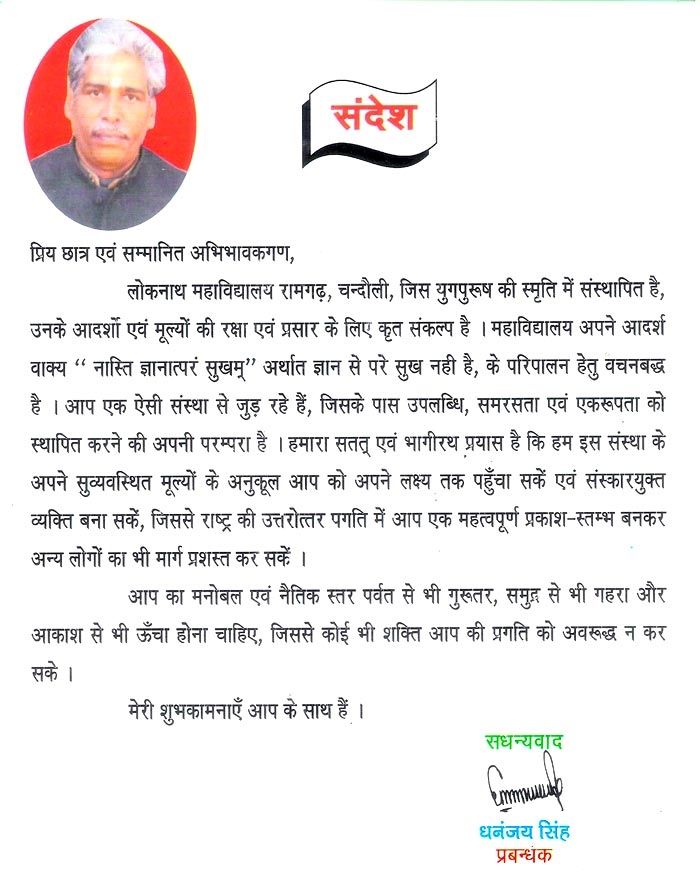 संदेश
प्रिय छात्र एवं सम्मानित अभिभावकगण,
लोकनाथ महाविद्यालय रामगढ़, चन्दौली, जिस युगपुरूष की स्मृति में संस्थापित है,
उनके आदर्शो एवं मूल्यों की रक्षा एवं प्रसार के लिए कृत संकल्प है । महाविद्यालय अपने आदर्श
वाक्य “ नास्ति ज्ञानात्परं सुखम्” अर्थात ज्ञान से परे सुख नही है, के परिपालन हेतु वचनबद्ध
है । आप एक ऐसी संस्था से जुड़ रहे हैं, जिसके पास उपलब्धि, समरसता एवं एकरूपता को
स्थापित करने की अपनी परम्परा है । हमारा सतत् एवं भागीरथ प्रयास है कि हम इस संस्था के
अपने सुव्यवस्थित मूल्यों के अनुकूल आप को अपने लक्ष्य तक पहुँचा सकें एवं संस्कारयुक्त
व्यक्ति बना सकें, जिससे राष्ट्र की उत्तरोत्तर पगति में आप एक महत्वपूर्ण प्रकाश-स्तम्भ बनकर
अन्य लोगों का भी मार्ग प्रशस्त कर सकें ।
आप का मनोबल एवं नैतिक स्तर पर्वत से भी गुरूतर, समुद्र से भी गहरा और
आकाश से भी ऊँचा होना चाहिए, जिससे कोई भी शक्ति आप की प्रगति को अवरूद्ध न कर
सके ।
मेरी शुभकामनाएँ आप के साथ हैं ।
सधन्यवाद
धनंजय सिंह
प्रबन्धक